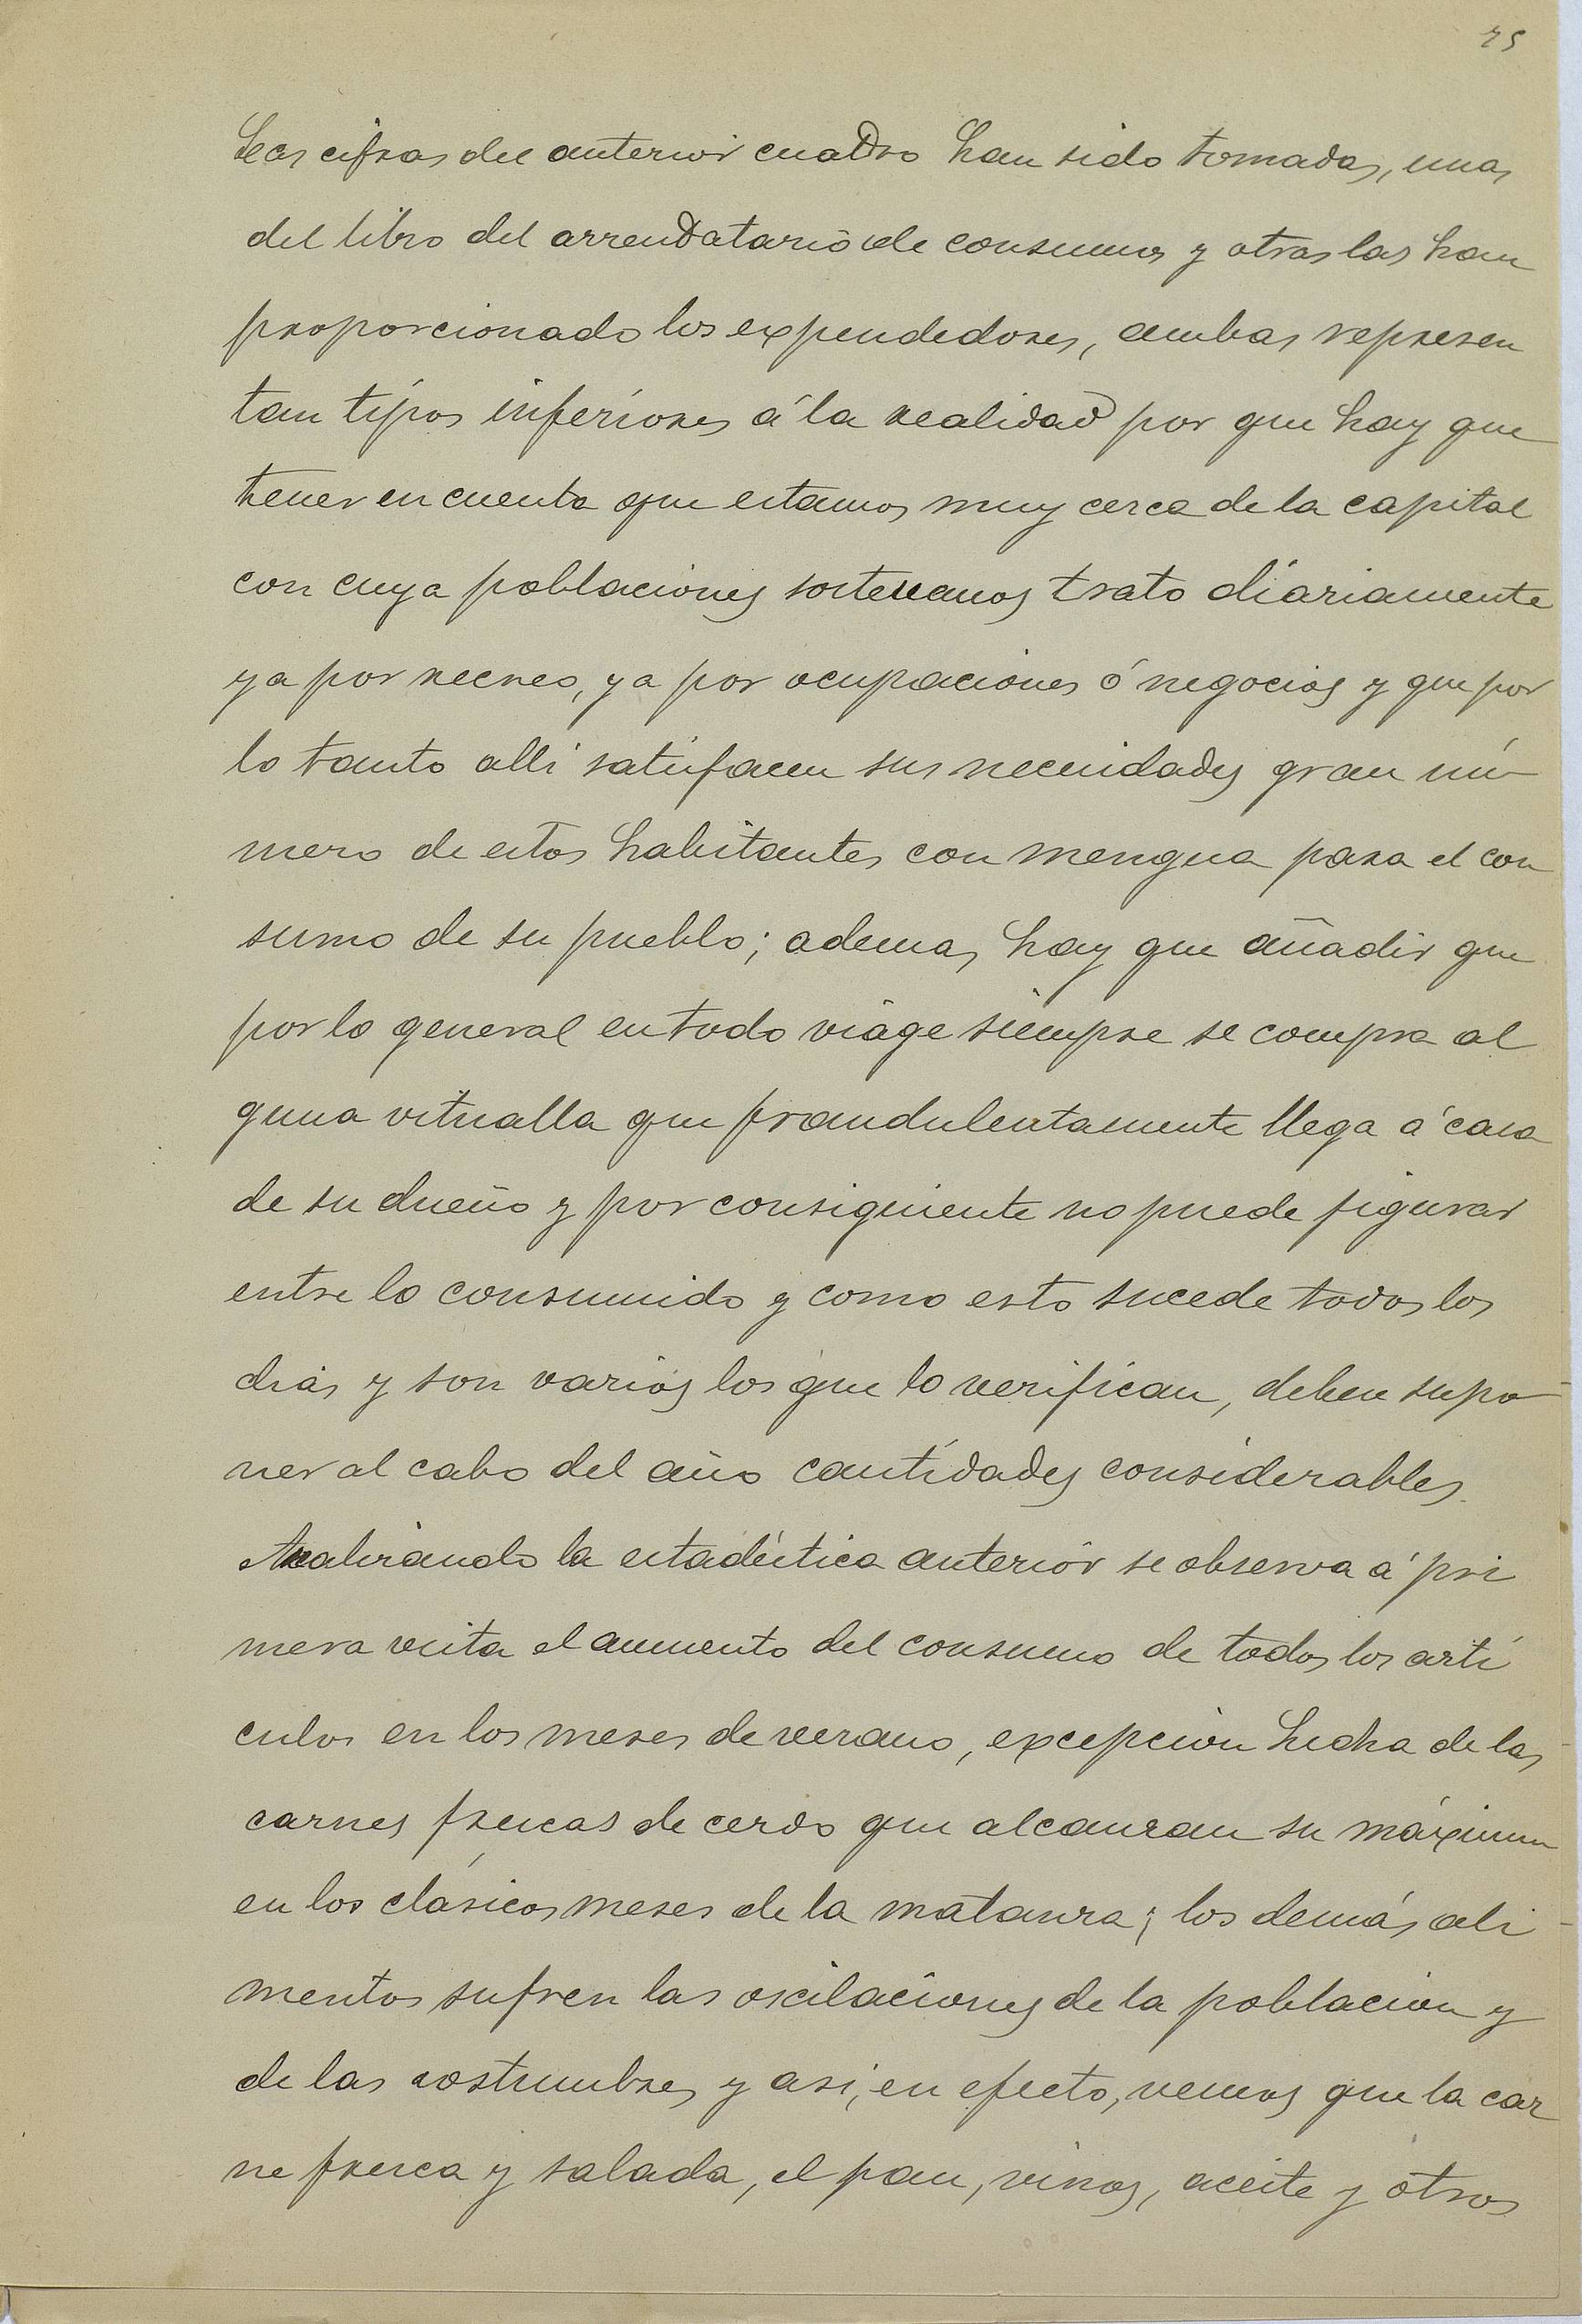 75
Las cifras del anterior cuadro han sido tomadas, unas
del libro del arrendatario de consumos y otras las han
proporcionado los expendedores, ambas represen
tan tipos inferiores á la realidad por que hay que
tener en cuenta que estamos muy cerca de la capital
con cuya poblaciones sostenemos trato diariamente
ya por recreo, ya por ocupaciones ó negocios y que por
lo tanto alli satisfacen sus necesidades gran nú-
mero de estos habitantes con mengua para el con
sumo de su pueblo; ademas hay que añadir que
por lo general en todo viage siempre se compra al
guna vitualla que fraudulentamente llega á casa
de su dueño y por consiguiente no puede figurar
entre lo consumido y como esto sucede todos los
dias y son varios los que lo verifican, deben supo-
ner al cabo del año cantidades considerables.
Analizando la estadística anterior se observa á pri
mera vista el aumento del consumo de todos los artí
culos en los meses de verano, excepcion hecha de las
carnes frescas de cerdo que alcanzan su máximum
en los clásicos meses de la matanza; los demás ali-
mentos sufren las oscilaciones de la poblacion y
de las costumbres y asi, en efecto, vemos que la car
ne fresca y salada, el pan, vinos, aceite y otros